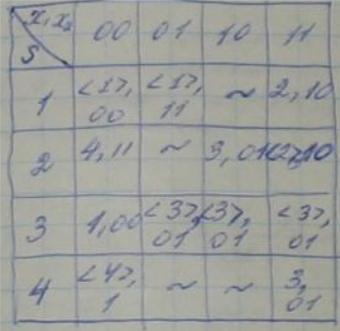 x₁x₂ 00 01 10 11
S
1 <1>, 00 <1>, 11 ~ 2,10
2 4,11 ~ 3,01 <2>,10
3 1,00 <3>, 01 <3>, 01 <3>, 01
4 <4>, 1 ~ ~ 3, 01